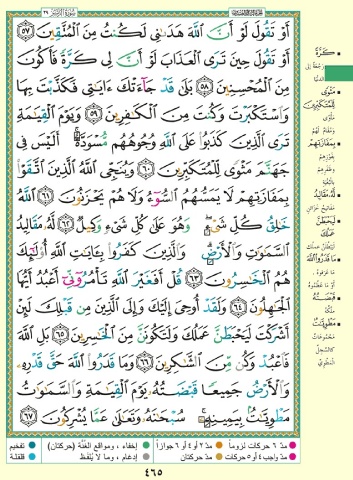 سُورَةُ الزُّمَرِ ٣٩
أَوْ تَقُولَ لَوْ أَنَّ ٱللَّهَ هَدَىٰنِى لَكُنتُ مِنَ ٱلْمُتَّقِينَ ٥٧
أَوْ تَقُولَ حِينَ تَرَى ٱلْعَذَابَ لَوْ أَنَّ لِى كَرَّةً فَأَكُونَ
مِنَ ٱلْمُحْسِنِينَ ٥٨ بَلَىٰ قَدْ جَآءَتْكَ ءَايَٰتِى فَكَذَّبْتَ بِهَا
وَٱسْتَكْبَرْتَ وَكُنتَ مِنَ ٱلْكَٰفِرِينَ ٥٩ وَيَوْمَ ٱلْقِيَٰمَةِ
تَرَى ٱلَّذِينَ كَذَبُوا۟ عَلَى ٱللَّهِ وُجُوهُهُم مُّسْوَدَّةٌ ۚ أَلَيْسَ فِى
جَهَنَّمَ مَثْوًى لِّلْمُتَكَبِّرِينَ ٦٠ وَيُنَجِّى ٱللَّهُ ٱلَّذِينَ ٱتَّقَوْا۟
بِمَفَازَتِهِمْ لَا يَمَسُّهُمُ ٱلسُّوٓءُ وَلَا هُمْ يَحْزَنُونَ ٦١ ٱللَّهُ
خَٰلِقُ كُلِّ شَىْءٍ ۖ وَهُوَ عَلَىٰ كُلِّ شَىْءٍ وَكِيلٌ ٦٢ لَّهُۥ مَقَالِيدُ
ٱلسَّمَٰوَٰتِ وَٱلْأَرْضِ ۗ وَٱلَّذِينَ كَفَرُوا۟ بِـَٔايَٰتِ ٱللَّهِ أُو۟لَٰٓئِكَ
هُمُ ٱلْخَٰسِرُونَ ٦٣ قُلْ أَفَغَيْرَ ٱللَّهِ تَأْمُرُوٓنِّىٓ أَعْبُدُ أَيُّهَا
ٱلْجَٰهِلُونَ ٦٤ وَلَقَدْ أُوحِىَ إِلَيْكَ وَإِلَى ٱلَّذِينَ مِن قَبْلِكَ لَئِنْ
أَشْرَكْتَ لَيَحْبَطَنَّ عَمَلُكَ وَلَتَكُونَنَّ مِنَ ٱلْخَٰسِرِينَ ٦٥ بَلِ ٱللَّهَ
فَٱعْبُدْ وَكُن مِّنَ ٱلشَّٰكِرِينَ ٦٦ وَمَا قَدَرُوا۟ ٱللَّهَ حَقَّ قَدْرِهِۦ
وَٱلْأَرْضُ جَمِيعًا قَبْضَتُهُۥ يَوْمَ ٱلْقِيَٰمَةِ وَٱلسَّمَٰوَٰتُ
مَطْوِيَّٰتٌۢ بِيَمِينِهِۦ ۚ سُبْحَٰنَهُۥ وَتَعَٰلَىٰ عَمَّا يُشْرِكُونَ ٦٧
كَرَّةً
رَجْعَةً إِلَى
الدُّنْيَا
مَثْوًى
لِّلْمُتَكَبِّرِينَ
مَأْوًى
وَمُقَامٌ لَهُمْ
بِمَفَازَتِهِمْ
بِفَوْزِهِمْ
لَهُ مَقَالِيدُ
مَفَاتِيحُ
لَيَحْبَطَنَّ
عَمَلُكَ
مَا قَدَرُوا اللَّهَ
قَبْضَتُهُ
مَطْوِيَّاتٌ
مدّ ٦ حركات لزوماً
مدّ ٢ أو ٤ أو ٦ جوازاً
إخفاء، ومواقع الغنّة (حركتان)
تفخيم
مدّ واجب ٤ أو ٥ حركات
مدّ حركتان
إدغام، وما لا يُلفظ
قلقلة
٤٦٥